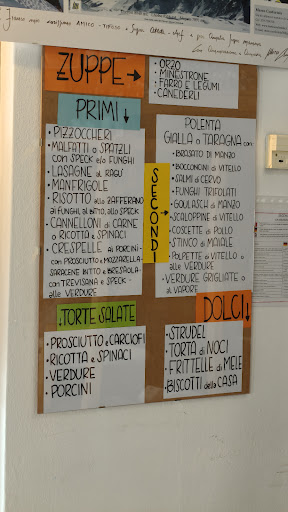 ZUPPE →
• ORZO
• MINESTRONE
• FARRO E LEGUMI
• CANEDERLI
PRIMI ↓
• PIZZOCCHERI
• MALFATTI o SPATZLI
con SPECK e/o FUNGHI
• LASAGNE al RAGU'
• MANFRIGOLE
• RISOTTO allo ZAFFERANO
ai FUNGHI, al BITTO, allo SPECK
• CANNELLONI di CARNE
o RICOTTA e SPINACI
• CRESPELLE ai PORCINI -
con PROSCIUTTO e MOZZARELLA -
SARACENE BITTO e BRESAOLA -
con TREVISANA e SPECK -
alle VERDURE
SECONDI →
POLENTA
GIALLA o TARAGNA con:
• BRASATO DI MANZO
• BOCCONCINI di VITELLO
• SALMÌ di CERVO
• FUNGHI TRIFOLATI
• GOULASCH di MANZO
• SCALOPPINE di VITELLO
• COSCETTE di POLLO
• STINCO di MAIALE
• POLPETTE di VITELLO o
alle VERDURE
• VERDURE GRIGLIATE o
al VAPORE
↓ TORTE SALATE
• PROSCIUTTO e CARCIOFI
• RICOTTA e SPINACI
• VERDURE
• PORCINI
DOLCI ↓
• STRUDEL
• TORTA di NOCI
• FRITTELLE di MELE
• BISCOTTI della CASA